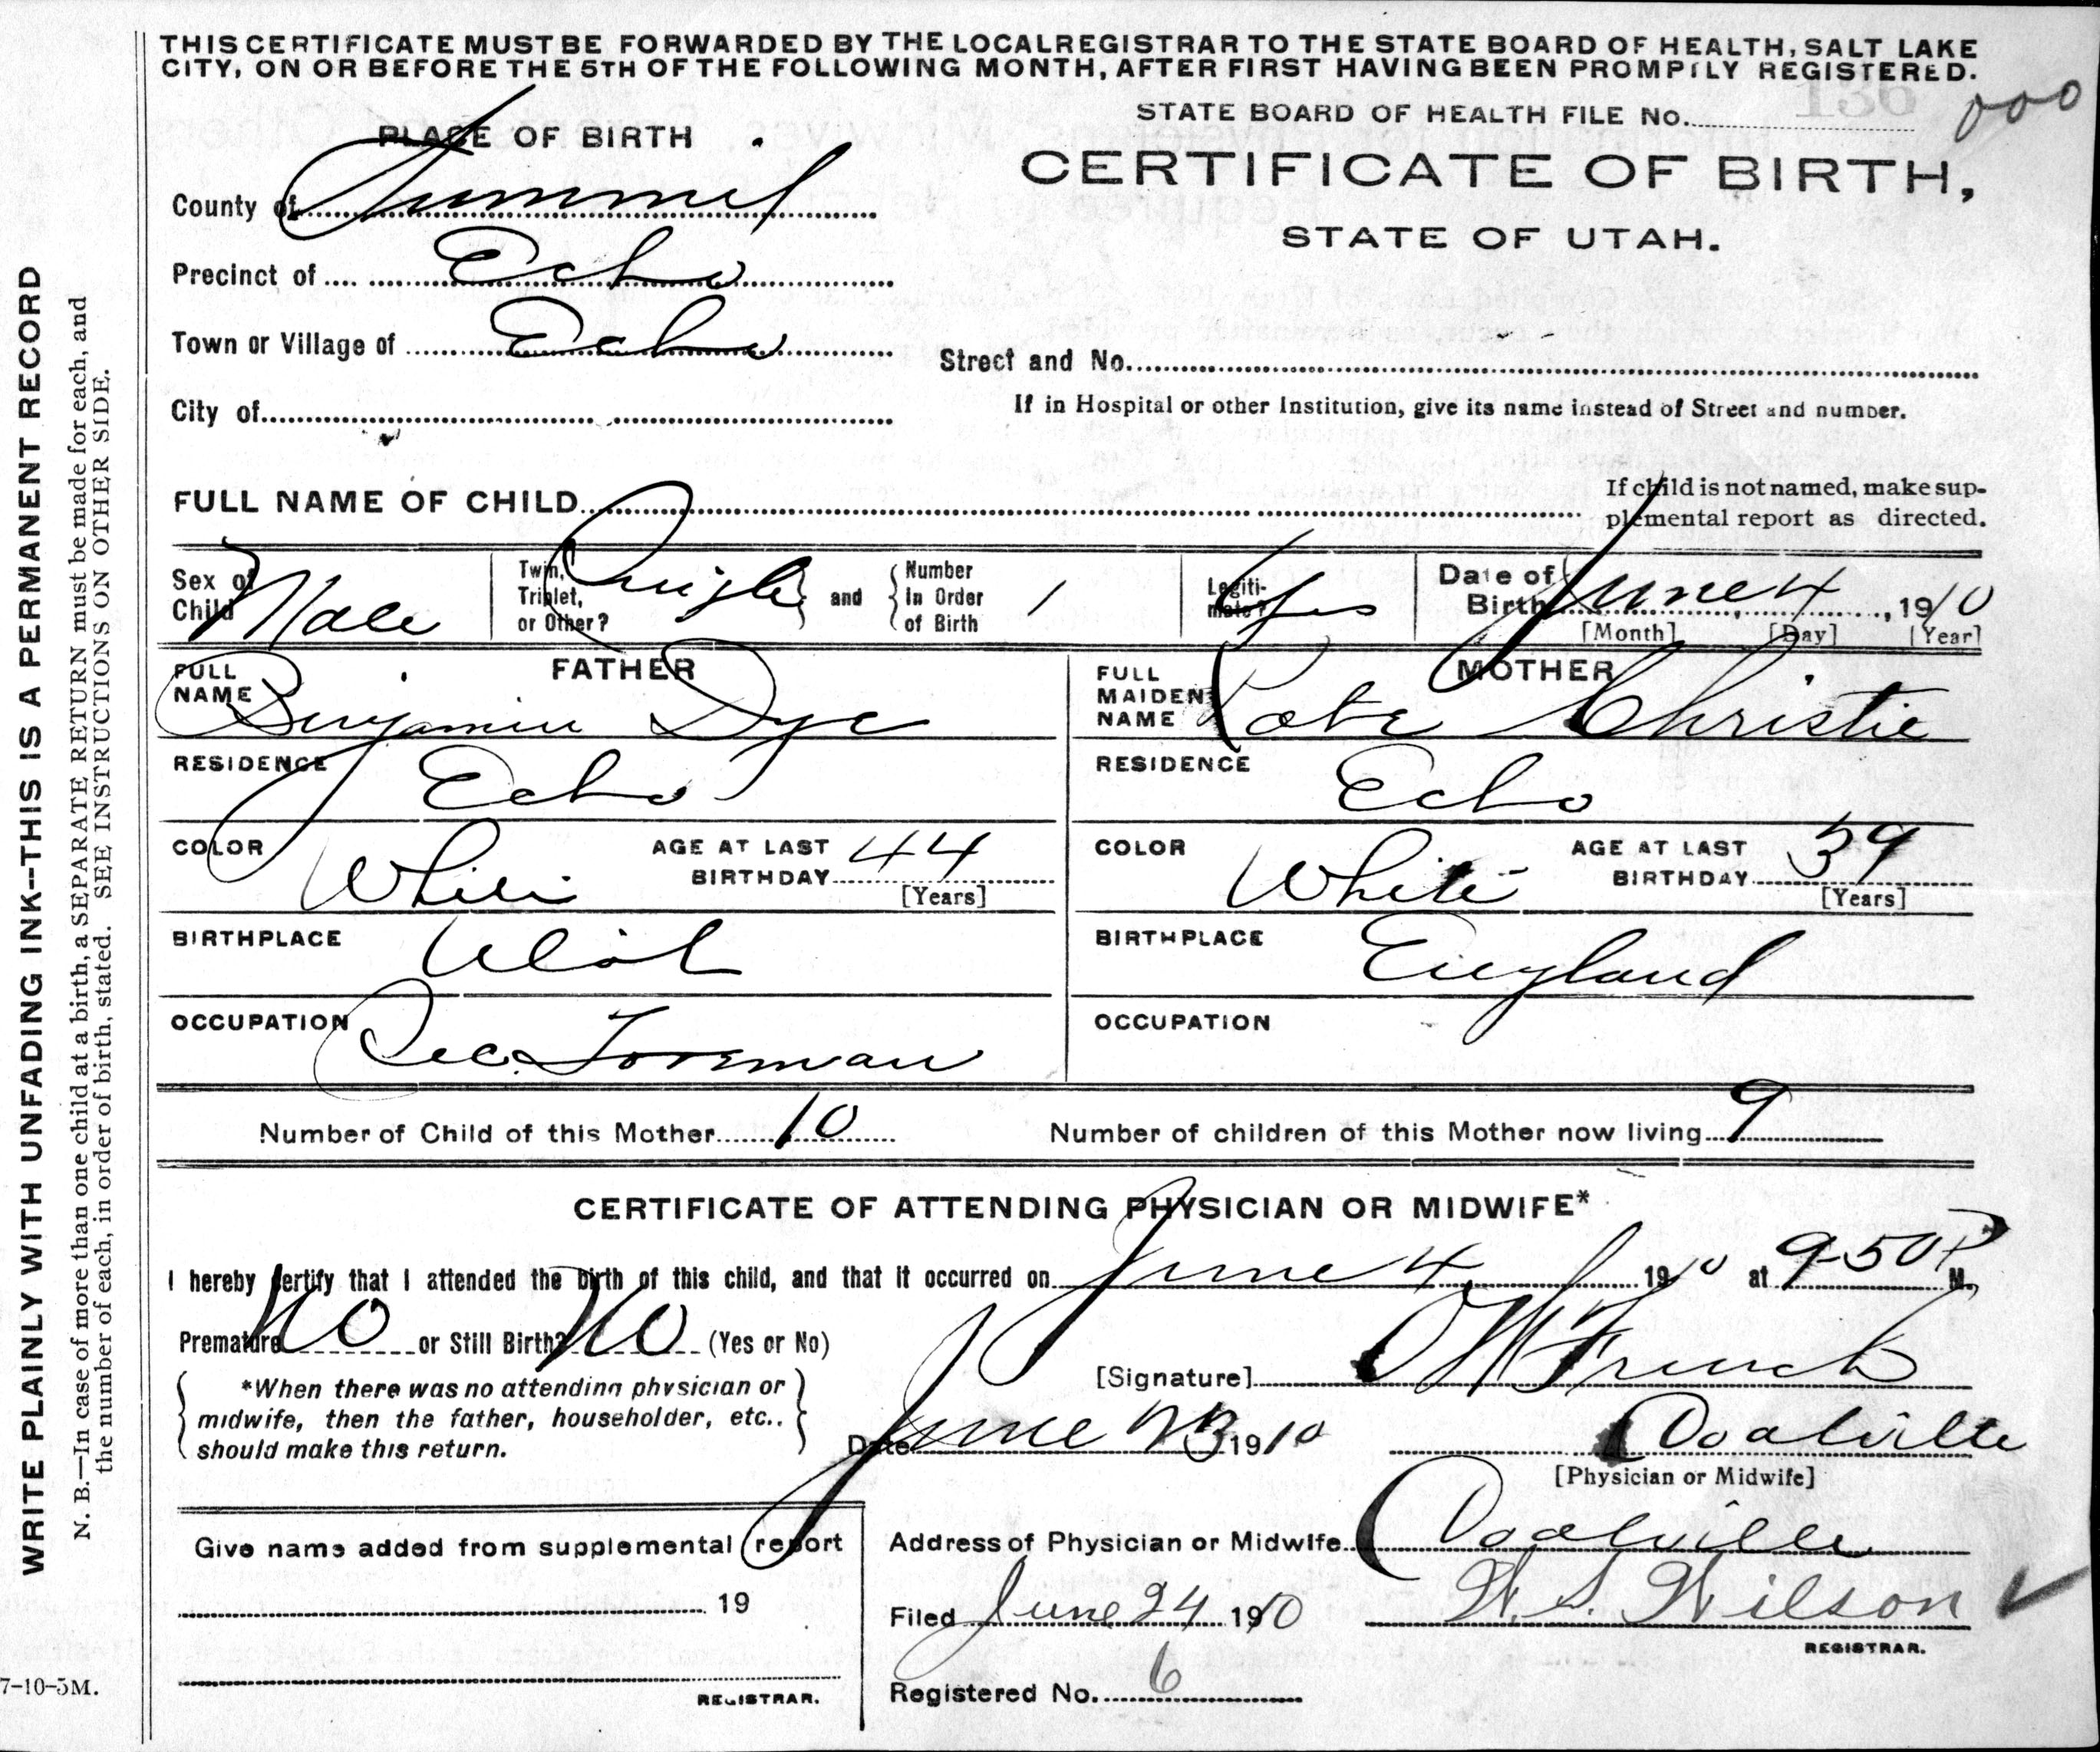 THIS CERTIFICATE MUST BE FORWARDED BY THE LOCAL REGISTRAR TO THE STATE BOARD OF HEALTH, SALT LAKE
CITY, ON OR BEFORE THE 5TH OF THE FOLLOWING MONTH, AFTER FIRST HAVING BEEN PROMPTLY REGISTERED.
STATE BOARD OF HEALTH FILE No. 136
000
PLACE OF BIRTH
CERTIFICATE OF BIRTH,
STATE OF UTAH.
County of Summit
Precinct of Echo
Town or Village of Echo
Street and No.
City of
If in Hospital or other Institution, give its name instead of Street and number.
FULL NAME OF CHILD
If child is not named, make sup-
plemental report as directed.
Sex of Child Male
Twin, Triplet, or Other? Single and Number In Order of Birth 1
Legiti-mate? Yes
Date of Birth June 4, 1910
[Month] [Day] [Year]
FATHER
MOTHER
FULL NAME Benjamin Dye
FULL MAIDEN NAME Kate Christie
RESIDENCE Echo
RESIDENCE Echo
COLOR White AGE AT LAST BIRTHDAY 44 [Years]
COLOR White AGE AT LAST BIRTHDAY 39 [Years]
BIRTHPLACE Utah
BIRTHPLACE England
OCCUPATION Sec. Foreman
OCCUPATION
Number of Child of this Mother 10
Number of children of this Mother now living 9
CERTIFICATE OF ATTENDING PHYSICIAN OR MIDWIFE*
I hereby certify that I attended the birth of this child, and that it occurred on June 4, 1910 at 9-50 P M.
Premature No or Still Birth? No (Yes or No)
[Signature] French
*When there was no attending physician or
midwife, then the father, householder, etc.,
should make this return.
Date June 23 1910
Coalville
[Physician or Midwife]
Give name added from supplemental report
19
REGISTRAR.
Address of Physician or Midwife Coalville
Filed June 24 1910 W. S. Wilson
REGISTRAR.
Registered No. 6
WRITE PLAINLY WITH UNFADING INK--THIS IS A PERMANENT RECORD
N. B.—In case of more than one child at a birth, a SEPARATE RETURN must be made for each, and
the number of each, in order of birth, stated. SEE INSTRUCTIONS ON OTHER SIDE.
7-10-5M.